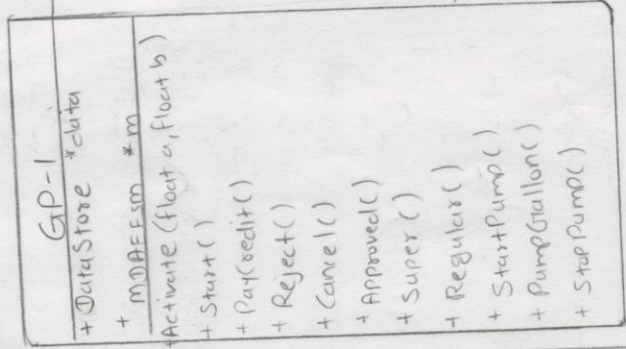 GP-1
+ DataStore *data
+ MDAEFSM *m
+Activate (float a, float b)
+ Start()
+ PayCredit()
+ Reject()
+ Cancel()
+ Approved()
+ Super()
+ Regular()
+ StartPump()
+ PumpGallon()
+ StopPump()